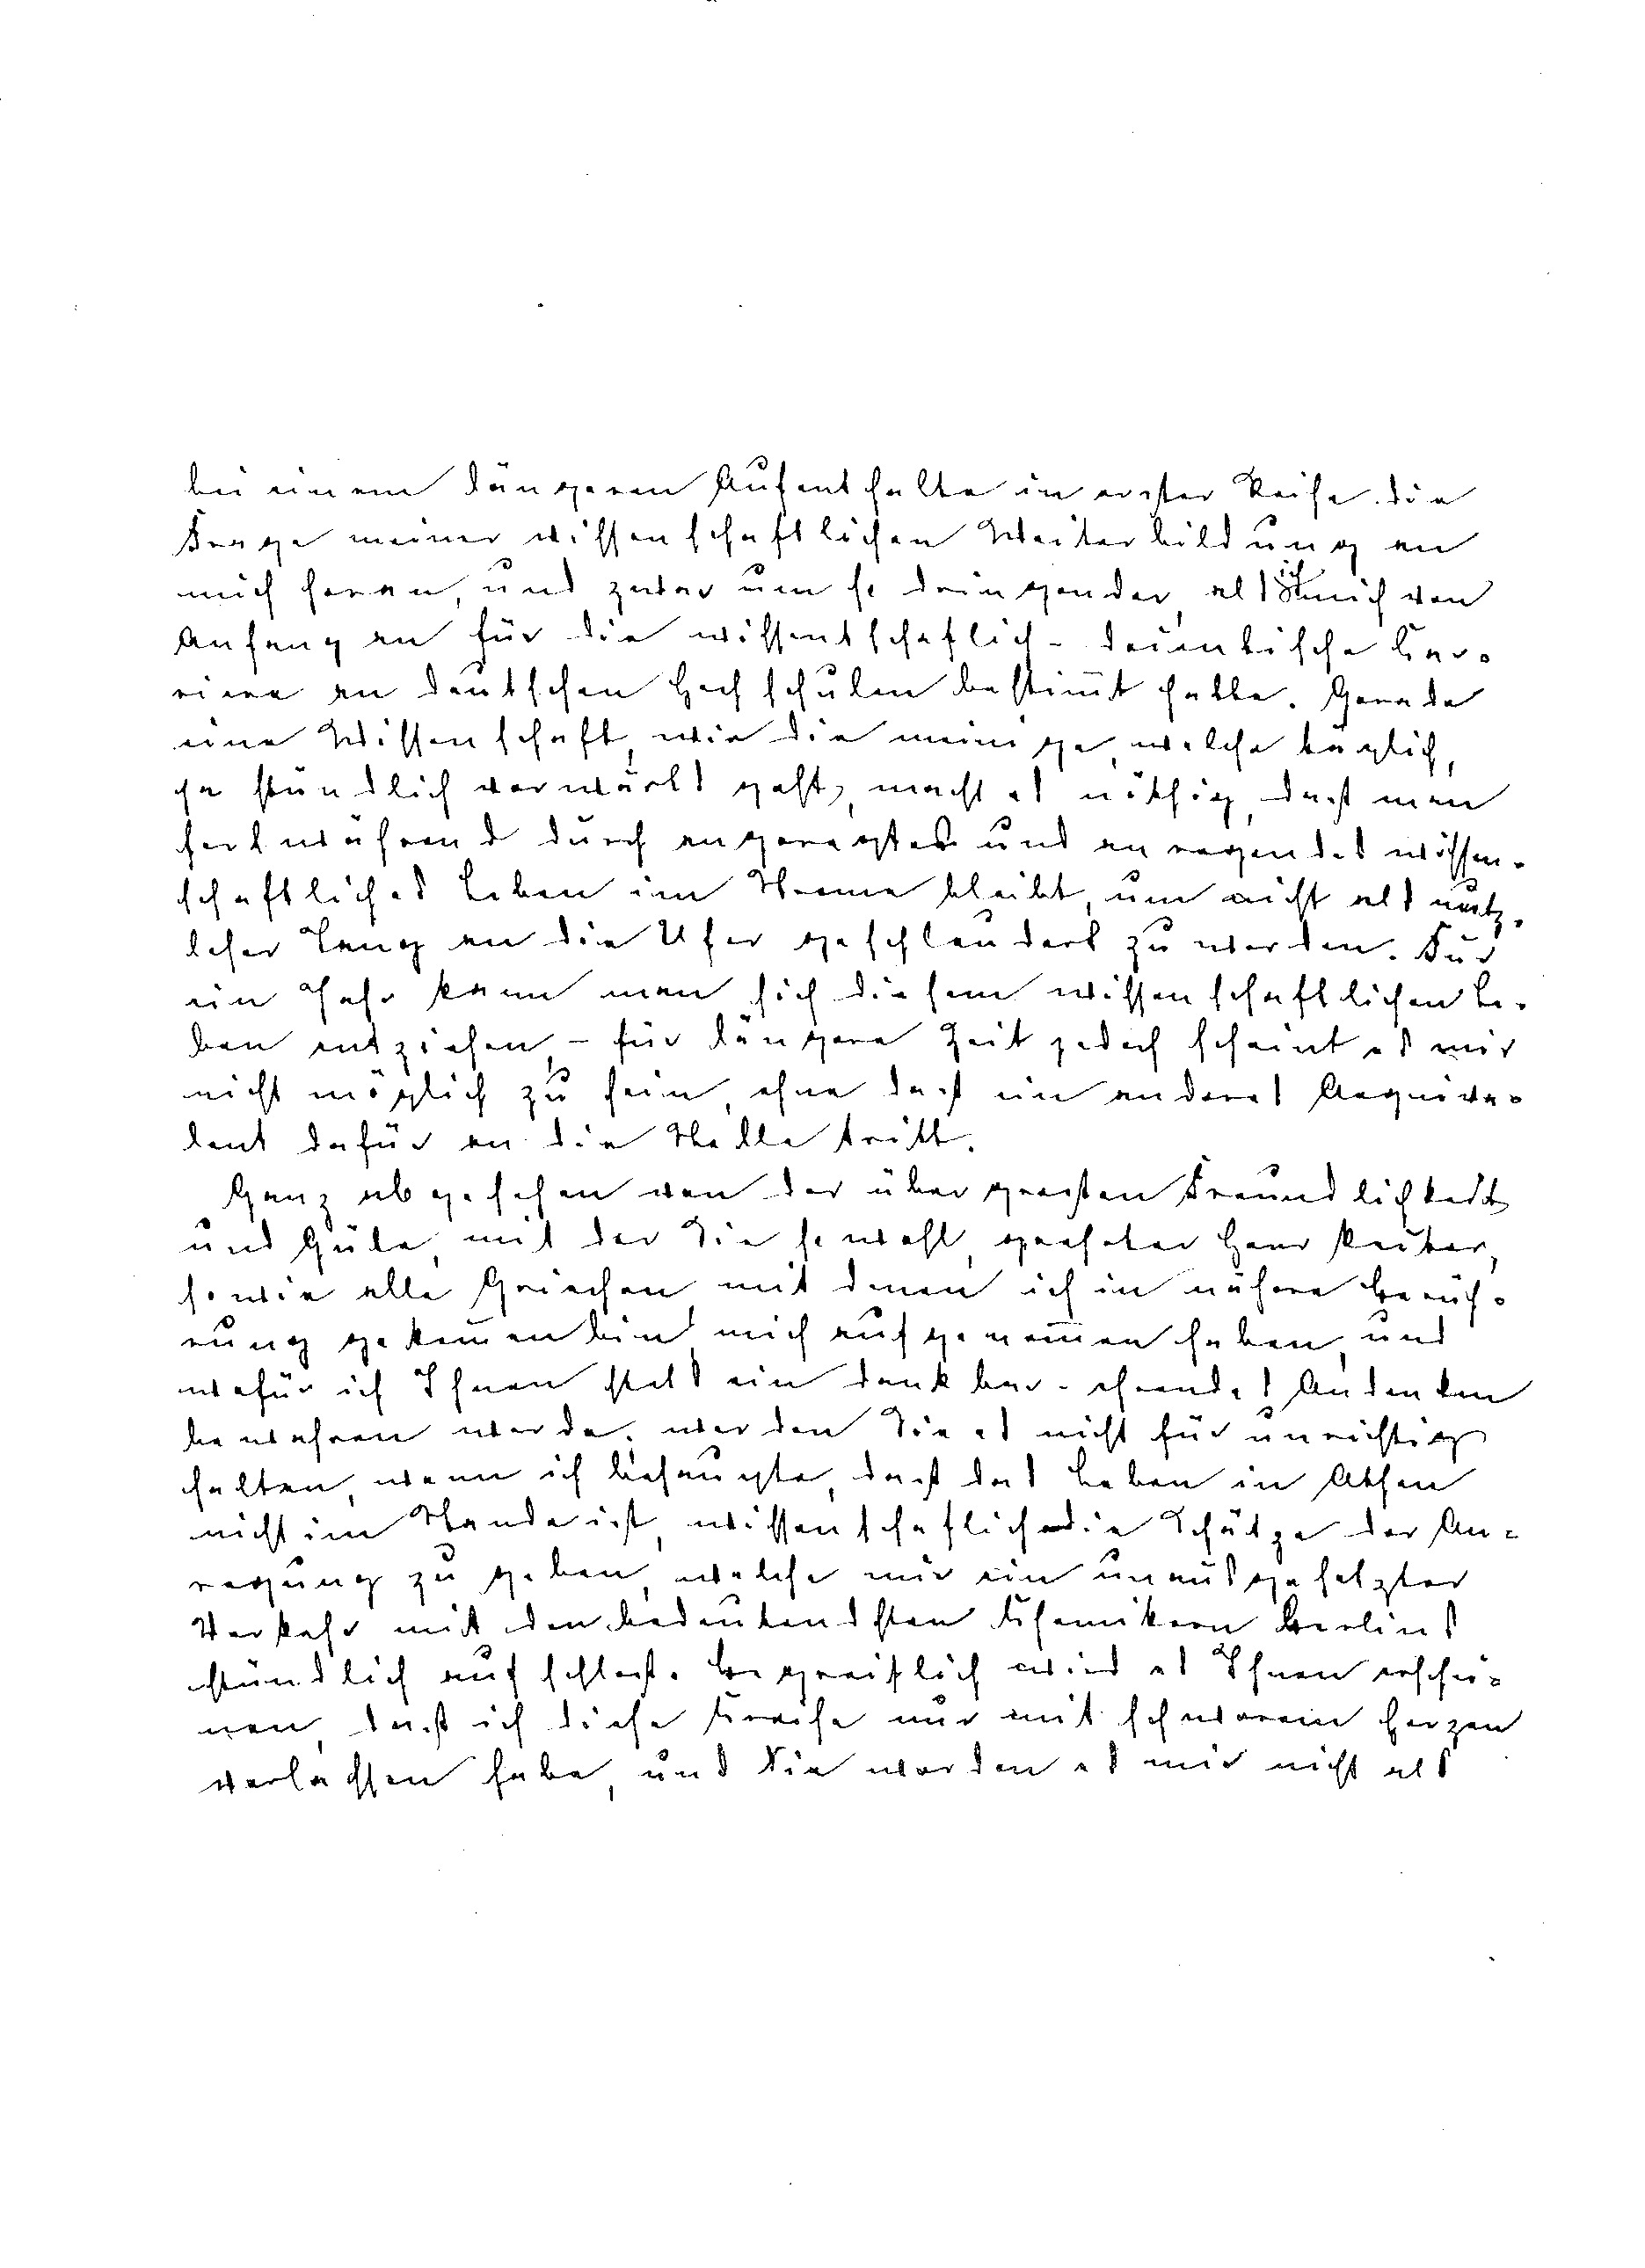 bei einem längeren Aufenthalte in erster Reihe die
Frage meiner wissenschaftlichen Weiterbildung an
mich heran, und zwar um so dringender, als ich mich von
Anfang an für die wissentschaftlich-docentische Car-
riere an deutschen Hochschulen bestimt hatte. Gerade
eine Wissenschaft, wie die meinige, welche täglich,
ja stündlich vorwärts geht, macht es nöthig, dass man
fortwährend durch angeregtes und anregendes wissen-
schaftliches Leben im Strome bleibt, um nicht als nutz-
loser Tang an die Ufer geschleudert zu werden. Für
ein Jahr kann man sich diesem wissenschaftlichen Le-
ben entziehen, - für längere Zeit jedoch scheint es mir
nicht möglich zu sein, ohne dass ein anderes Aequiva-
lent dafür an die Stelle tritt.
Ganz abgesehen von der über grossen Freundlichkeit
und Güte, mit der Sie sowohl, geehrter Herr
sowie alle Griechen mit denen ich in nähere Berüh-
rung gekom̄en bin, mich aufgenom̄en haben, und
wofür ich Ihnen stets ein dankbar-ehrendes Andenken
bewahren werde, werden Sie es nicht für unrichtig
halten, wenn ich behaupte, dass das Leben in Athen
nicht im Stande ist, wissenschaftlich die Schätze der An-
regung zu geben, welche mir ein unausgesetzter
Verkehr mit den bedeutendsten Chemikern Berlins
stündlich aufschloss. Begreiflich wird es Ihnen erschei-
nen, dass ich diese Kreise nur mit schwerem Herzen
verlassen habe, und Sie werden es mir nicht als